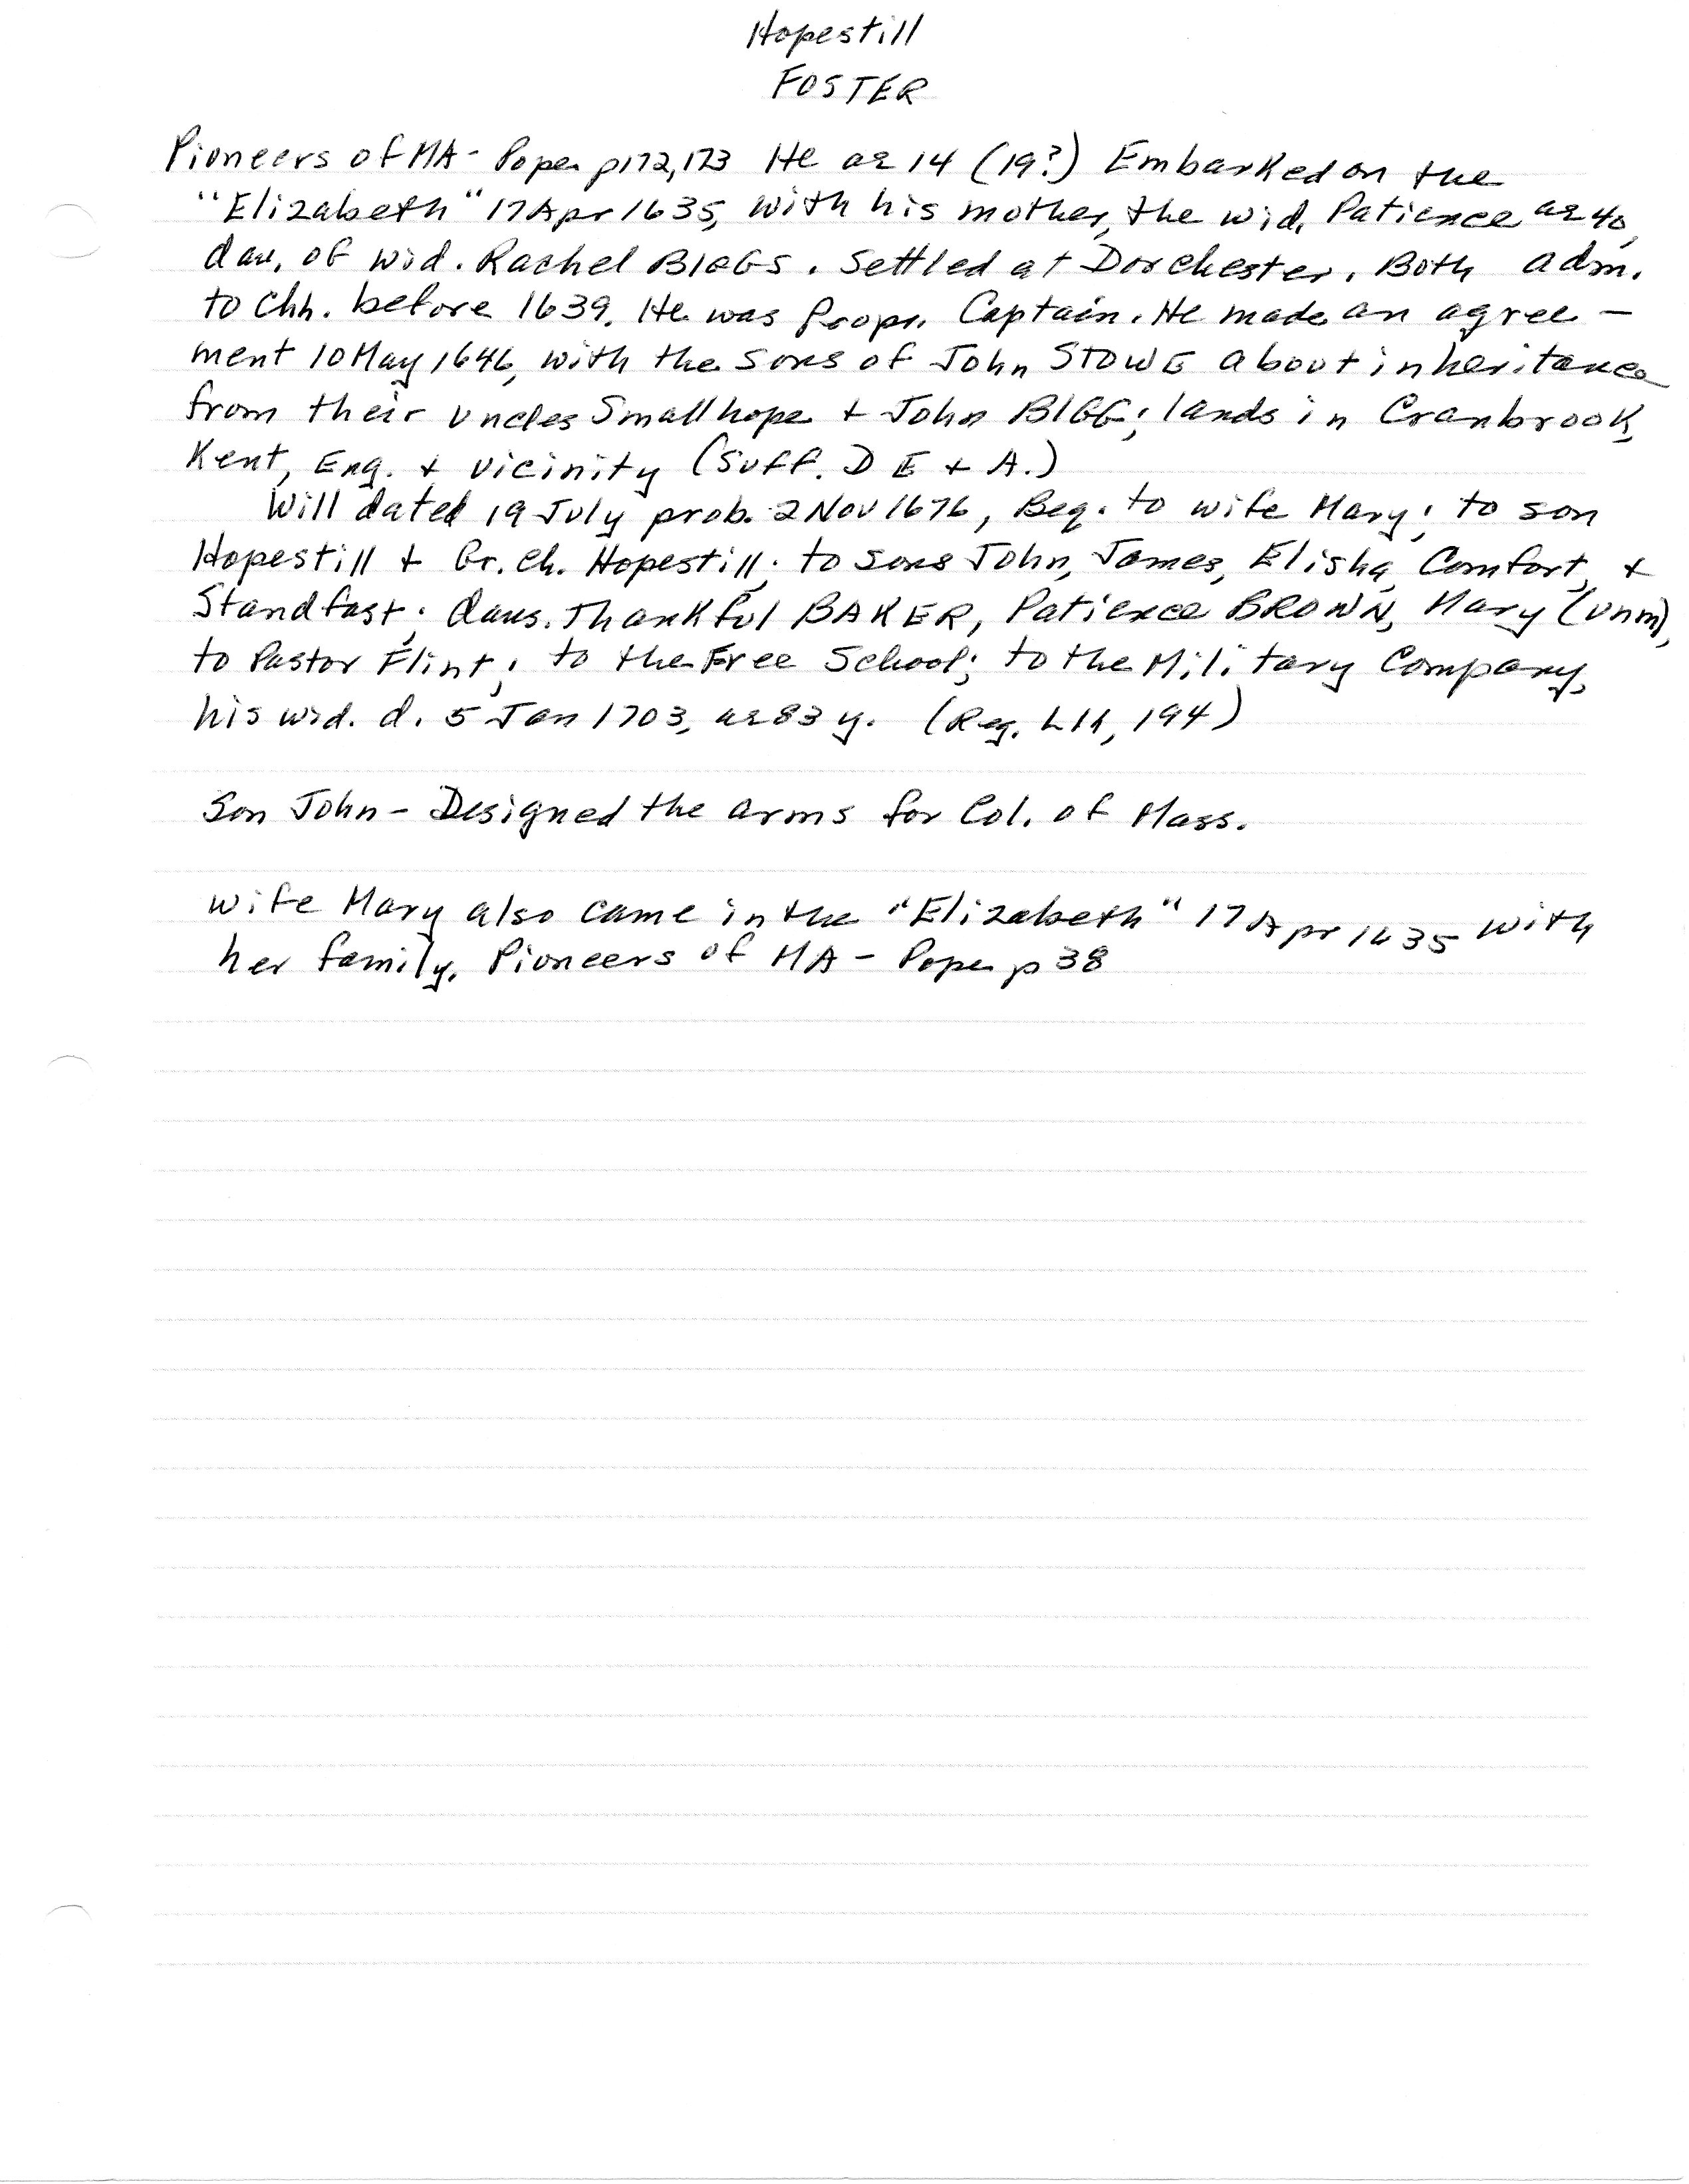 Hopestill
FOSTER
Pioneers of MA - Pope p172,173 He ae 14 (19?) Embarked on the
"Elizabeth" 17 Apr 1635, with his mother, the wid. Patience ae 40,
dau. of wid. Rachel BIGGS. Settled at Dorchester. Both adm.
to Chh. before 1639. He was propr. Captain. He made an agree -
ment 10 May 1646, with the sons of John STOWE about inheritance
from their uncles Smallhope + John BIGG; lands in Cranbrook,
Kent, Eng. + vicinity (Suff. D E + A.)
Will dated 19 July prob. 2 Nov 1676, Beq. to wife Mary; to son
Hopestill + Gr. Ch. Hopestill; to sons John, James, Elisha, Comfort, +
Standfast; daus. Thankful BAKER, Patience BROWN, Mary (unm),
to Pastor Flint; to the Free School; to the Military Company,
his wid. d. 5 Jan 1703, ae 83 y. (Reg. LII, 194)
Son John - Designed the arms for Col. of Mass.
wife Mary also came in the "Elizabeth" 17 Apr 1635 with
her family. Pioneers of MA - Pope p 38